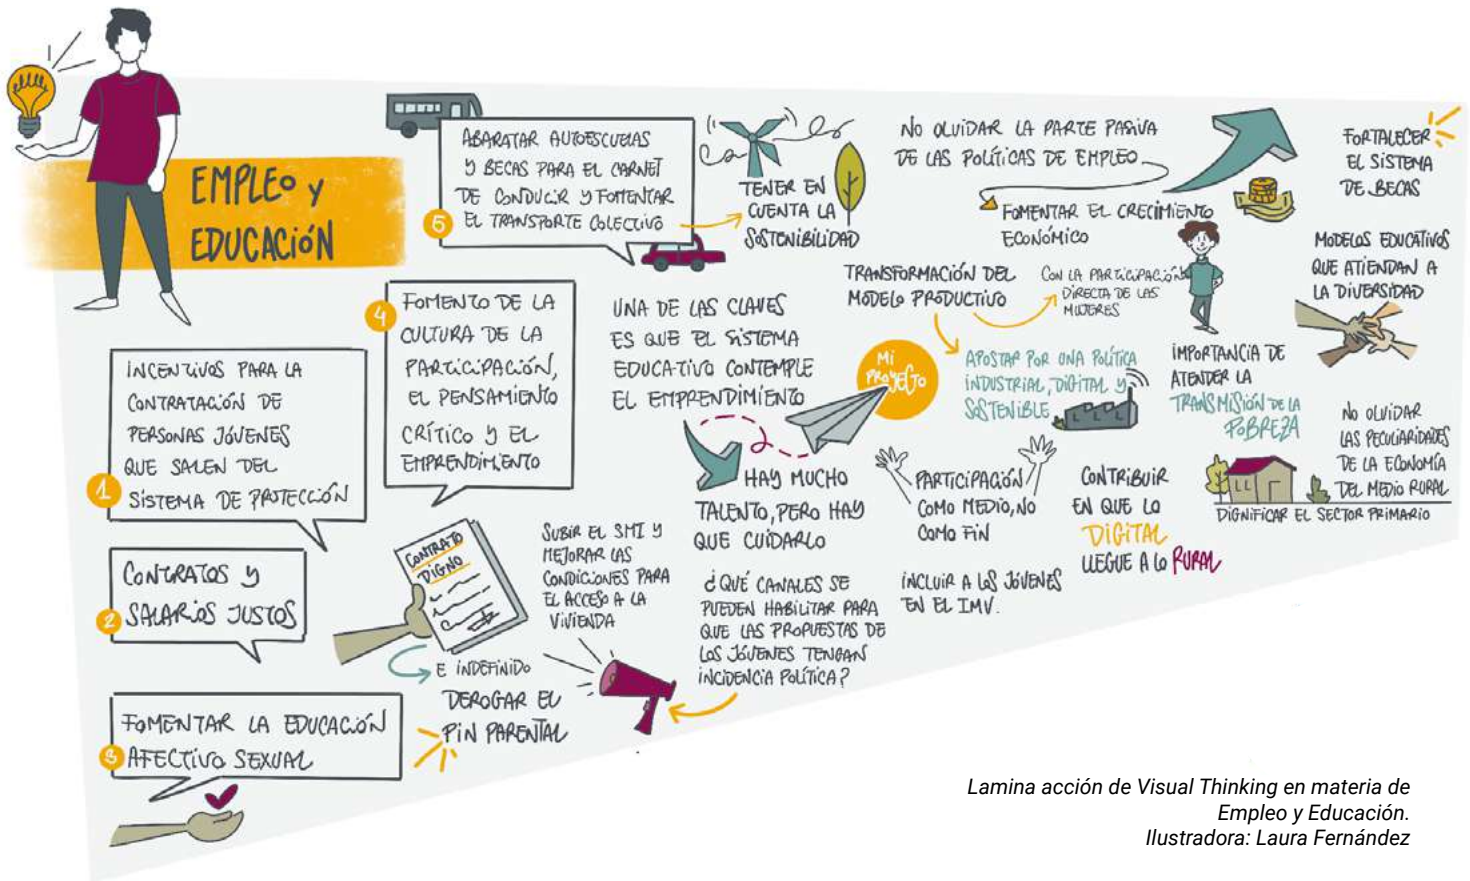 EMPLEO Y
EDUCACIÓN
1
INCENTIVOS PARA LA
CONTRATACIÓN DE
PERSONAS JÓVENES
QUE SALEN DEL
SISTEMA DE PROTECCIÓN
2
CONTRATOS Y
SALARIOS JUSTOS
3
FOMENTAR LA EDUCACIÓN
AFECTIVO SEXUAL
4
FOMENTO DE LA
CULTURA DE LA
PARTICIPACIÓN,
EL PENSAMIENTO
CRÍTICO Y EL
EMPRENDIMIENTO
5
ABARATAR AUTOESCUELAS
Y BECAS PARA EL CARNET
DE CONDUCIR Y FOMENTAR
EL TRANSPORTE COLECTIVO
TENER EN
CUENTA LA
SOSTENIBILIDAD
CONTRATO
DIGNO
E INDEFINIDO
DEROGAR EL
PIN PARENTAL
SUBIR EL SMI Y
MEJORAR LAS
CONDICIONES PARA
EL ACCESO A LA
VIVIENDA
UNA DE LAS CLAVES
ES QUE EL SISTEMA
EDUCATIVO CONTEMPLE
EL EMPRENDIMIENTO
MI
PROYECTO
HAY MUCHO
TALENTO, PERO HAY
QUE CUIDARLO
¿QUÉ CANALES SE
PUEDEN HABILITAR PARA
QUE LAS PROPUESTAS DE
LOS JÓVENES TENGAN
INCIDENCIA POLÍTICA?
NO OLVIDAR LA PARTE PASIVA
DE LAS POLÍTICAS DE EMPLEO
FOMENTAR EL CRECIMIENTO
ECONÓMICO
TRANSFORMACIÓN DEL
MODELO PRODUCTIVO
CON LA PARTICIPACIÓN
DIRECTA DE LAS
MUJERES
APOSTAR POR UNA POLÍTICA
INDUSTRIAL, DIGITAL Y
SOSTENIBLE
PARTICIPACIÓN
COMO MEDIO, NO
COMO FIN
INCLUIR A LOS JÓVENES
EN EL IMV.
CONTRIBUIR
EN QUE LO
DIGITAL
LLEGUE A LO RURAL
IMPORTANCIA DE
ATENDER LA
TRANSMISIÓN DE LA
POBREZA
FORTALECER
EL SISTEMA
DE BECAS
MODELOS EDUCATIVOS
QUE ATIENDAN A
LA DIVERSIDAD
NO OLVIDAR
LAS PECULIARIDADES
DE LA ECONOMÍA
DEL MEDIO RURAL
DIGNIFICAR EL SECTOR PRIMARIO
Lamina acción de Visual Thinking en materia de
Empleo y Educación.
Ilustradora: Laura Fernández